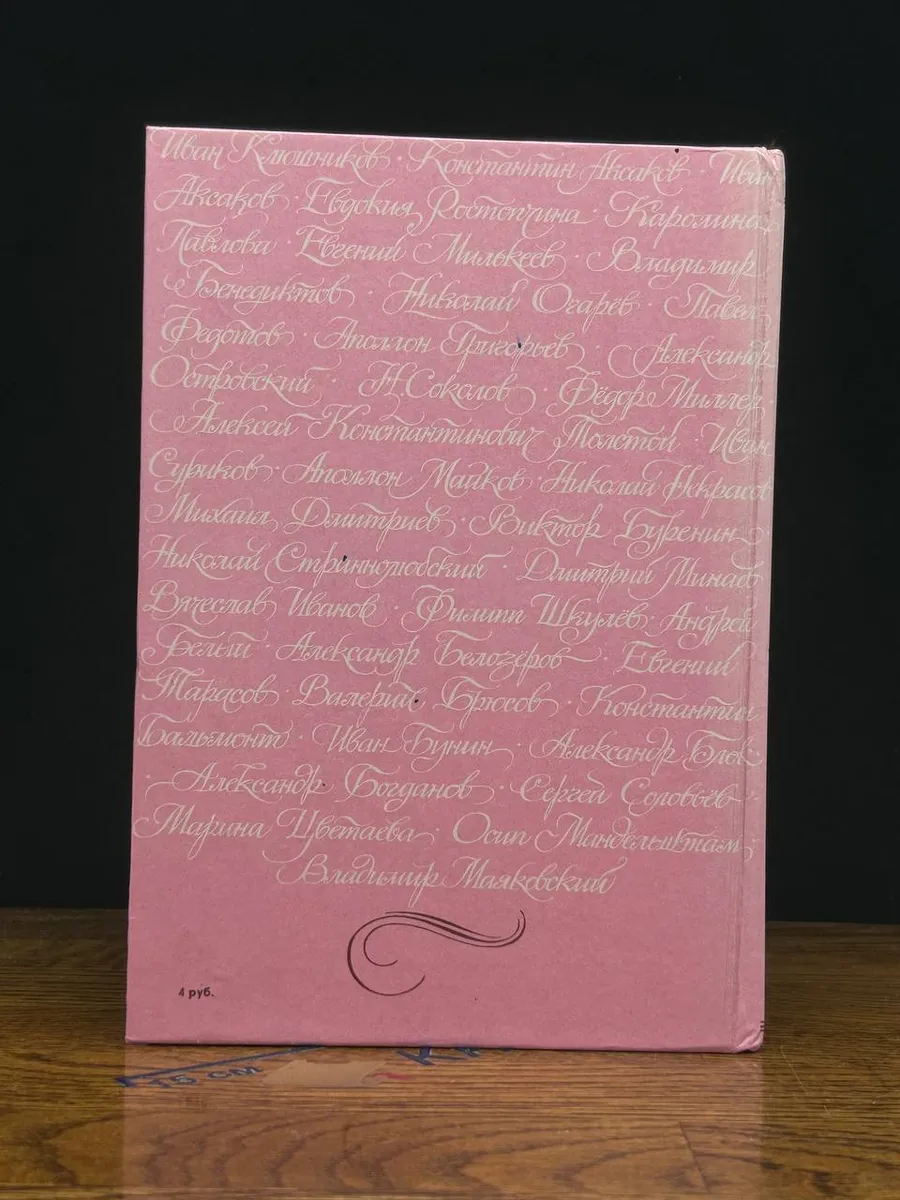 Иван Клюшников · Константин Аксаков · Иван
Аксаков · Евдокия Ростопчина · Каролина
Павлова · Евгений Милькеев · Владимир
Бенедиктов · Николай Огарёв · Павел
Федотов · Аполлон Григорьев · Александр
Островский · Н. Соколов · Фёдор Миллер ·
Алексей Константинович Толстой · Иван
Суриков · Аполлон Майков · Николай Некрасов
Михаил Дмитриев · Виктор Буренин
Николай Страннолюбский · Дмитрий Минаев
Вячеслав Иванов · Филипп Шкулёв · Андрей
Белый · Александр Белозёров · Евгений
Тарасов · Валерий Брюсов · Константин
Бальмонт · Иван Бунин · Александр Блок
· Александр Богданов · Сергей Соловьёв
Марина Цветаева · Осип Мандельштам ·
Владимир Маяковский
4 руб.
15 см